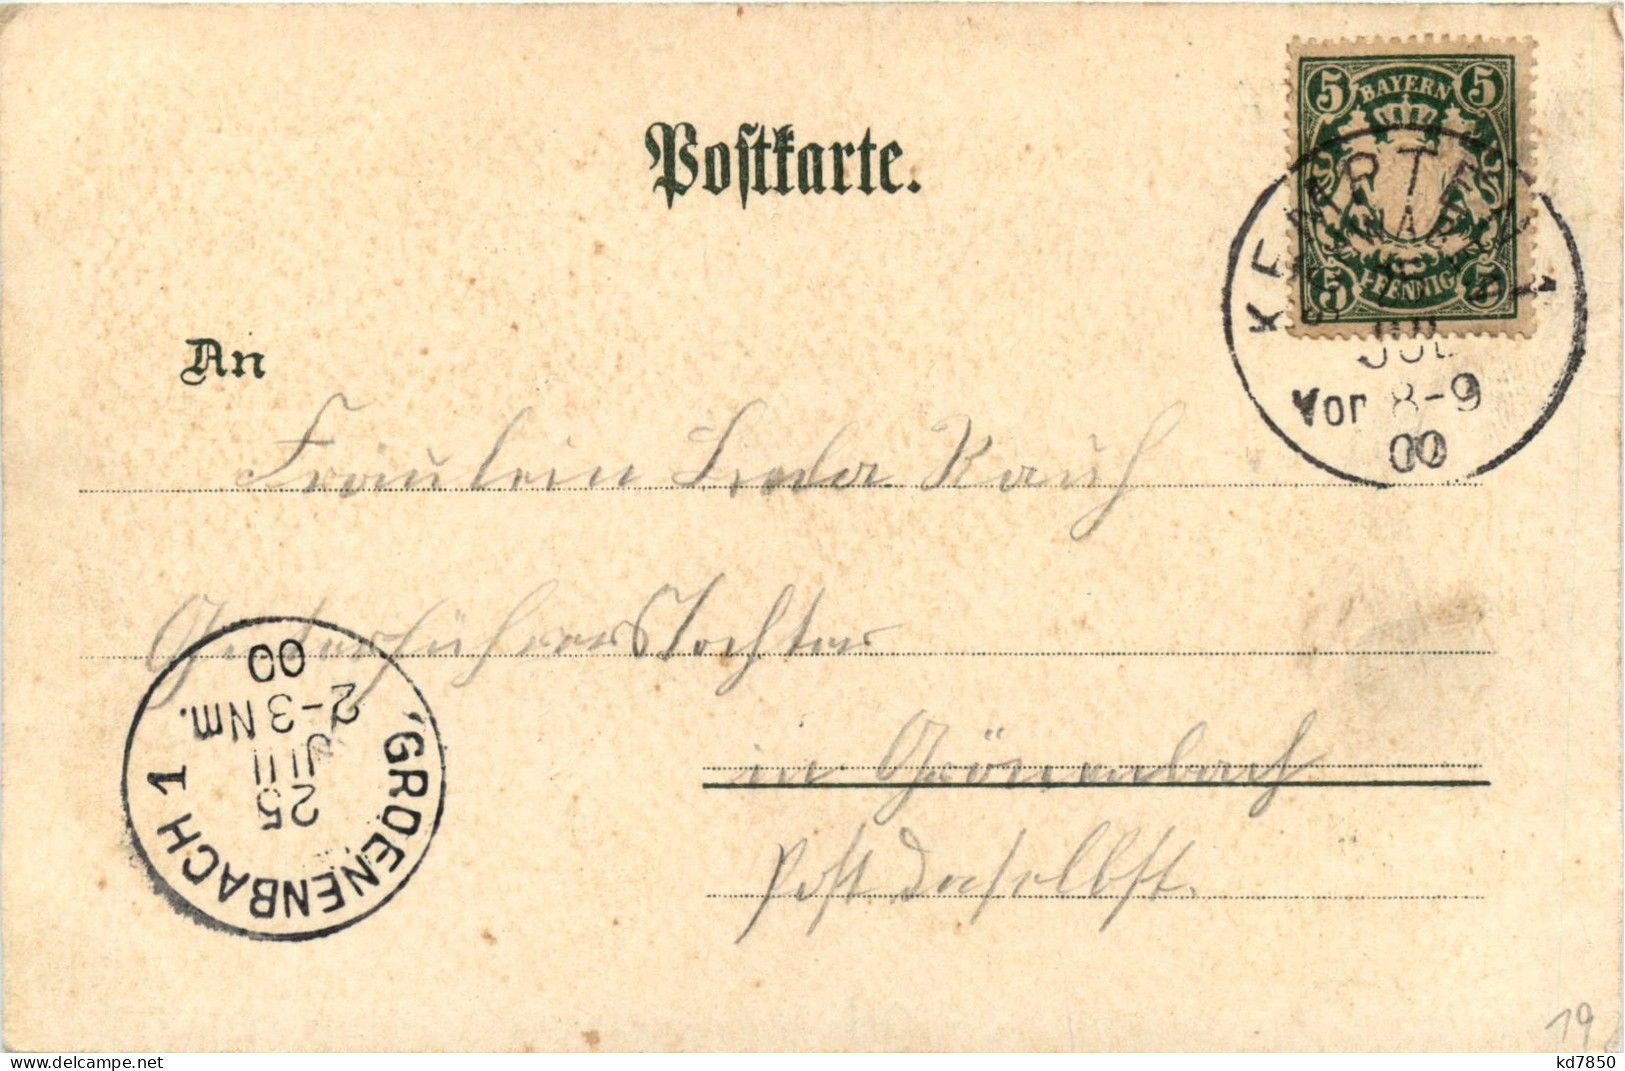 5 BAYERN 5
5 PFENNIG 5
KEMPTEN
JUL
Vor 8-9
00
Postkarte.
An
Fräulein Leda Rauh
Güterführers Tochter
in Grönenbach
Post daselbst.
GROENENBACH 1
25
JUL
2-3 Nm.
00
19
www.delcampe.net
kd7850